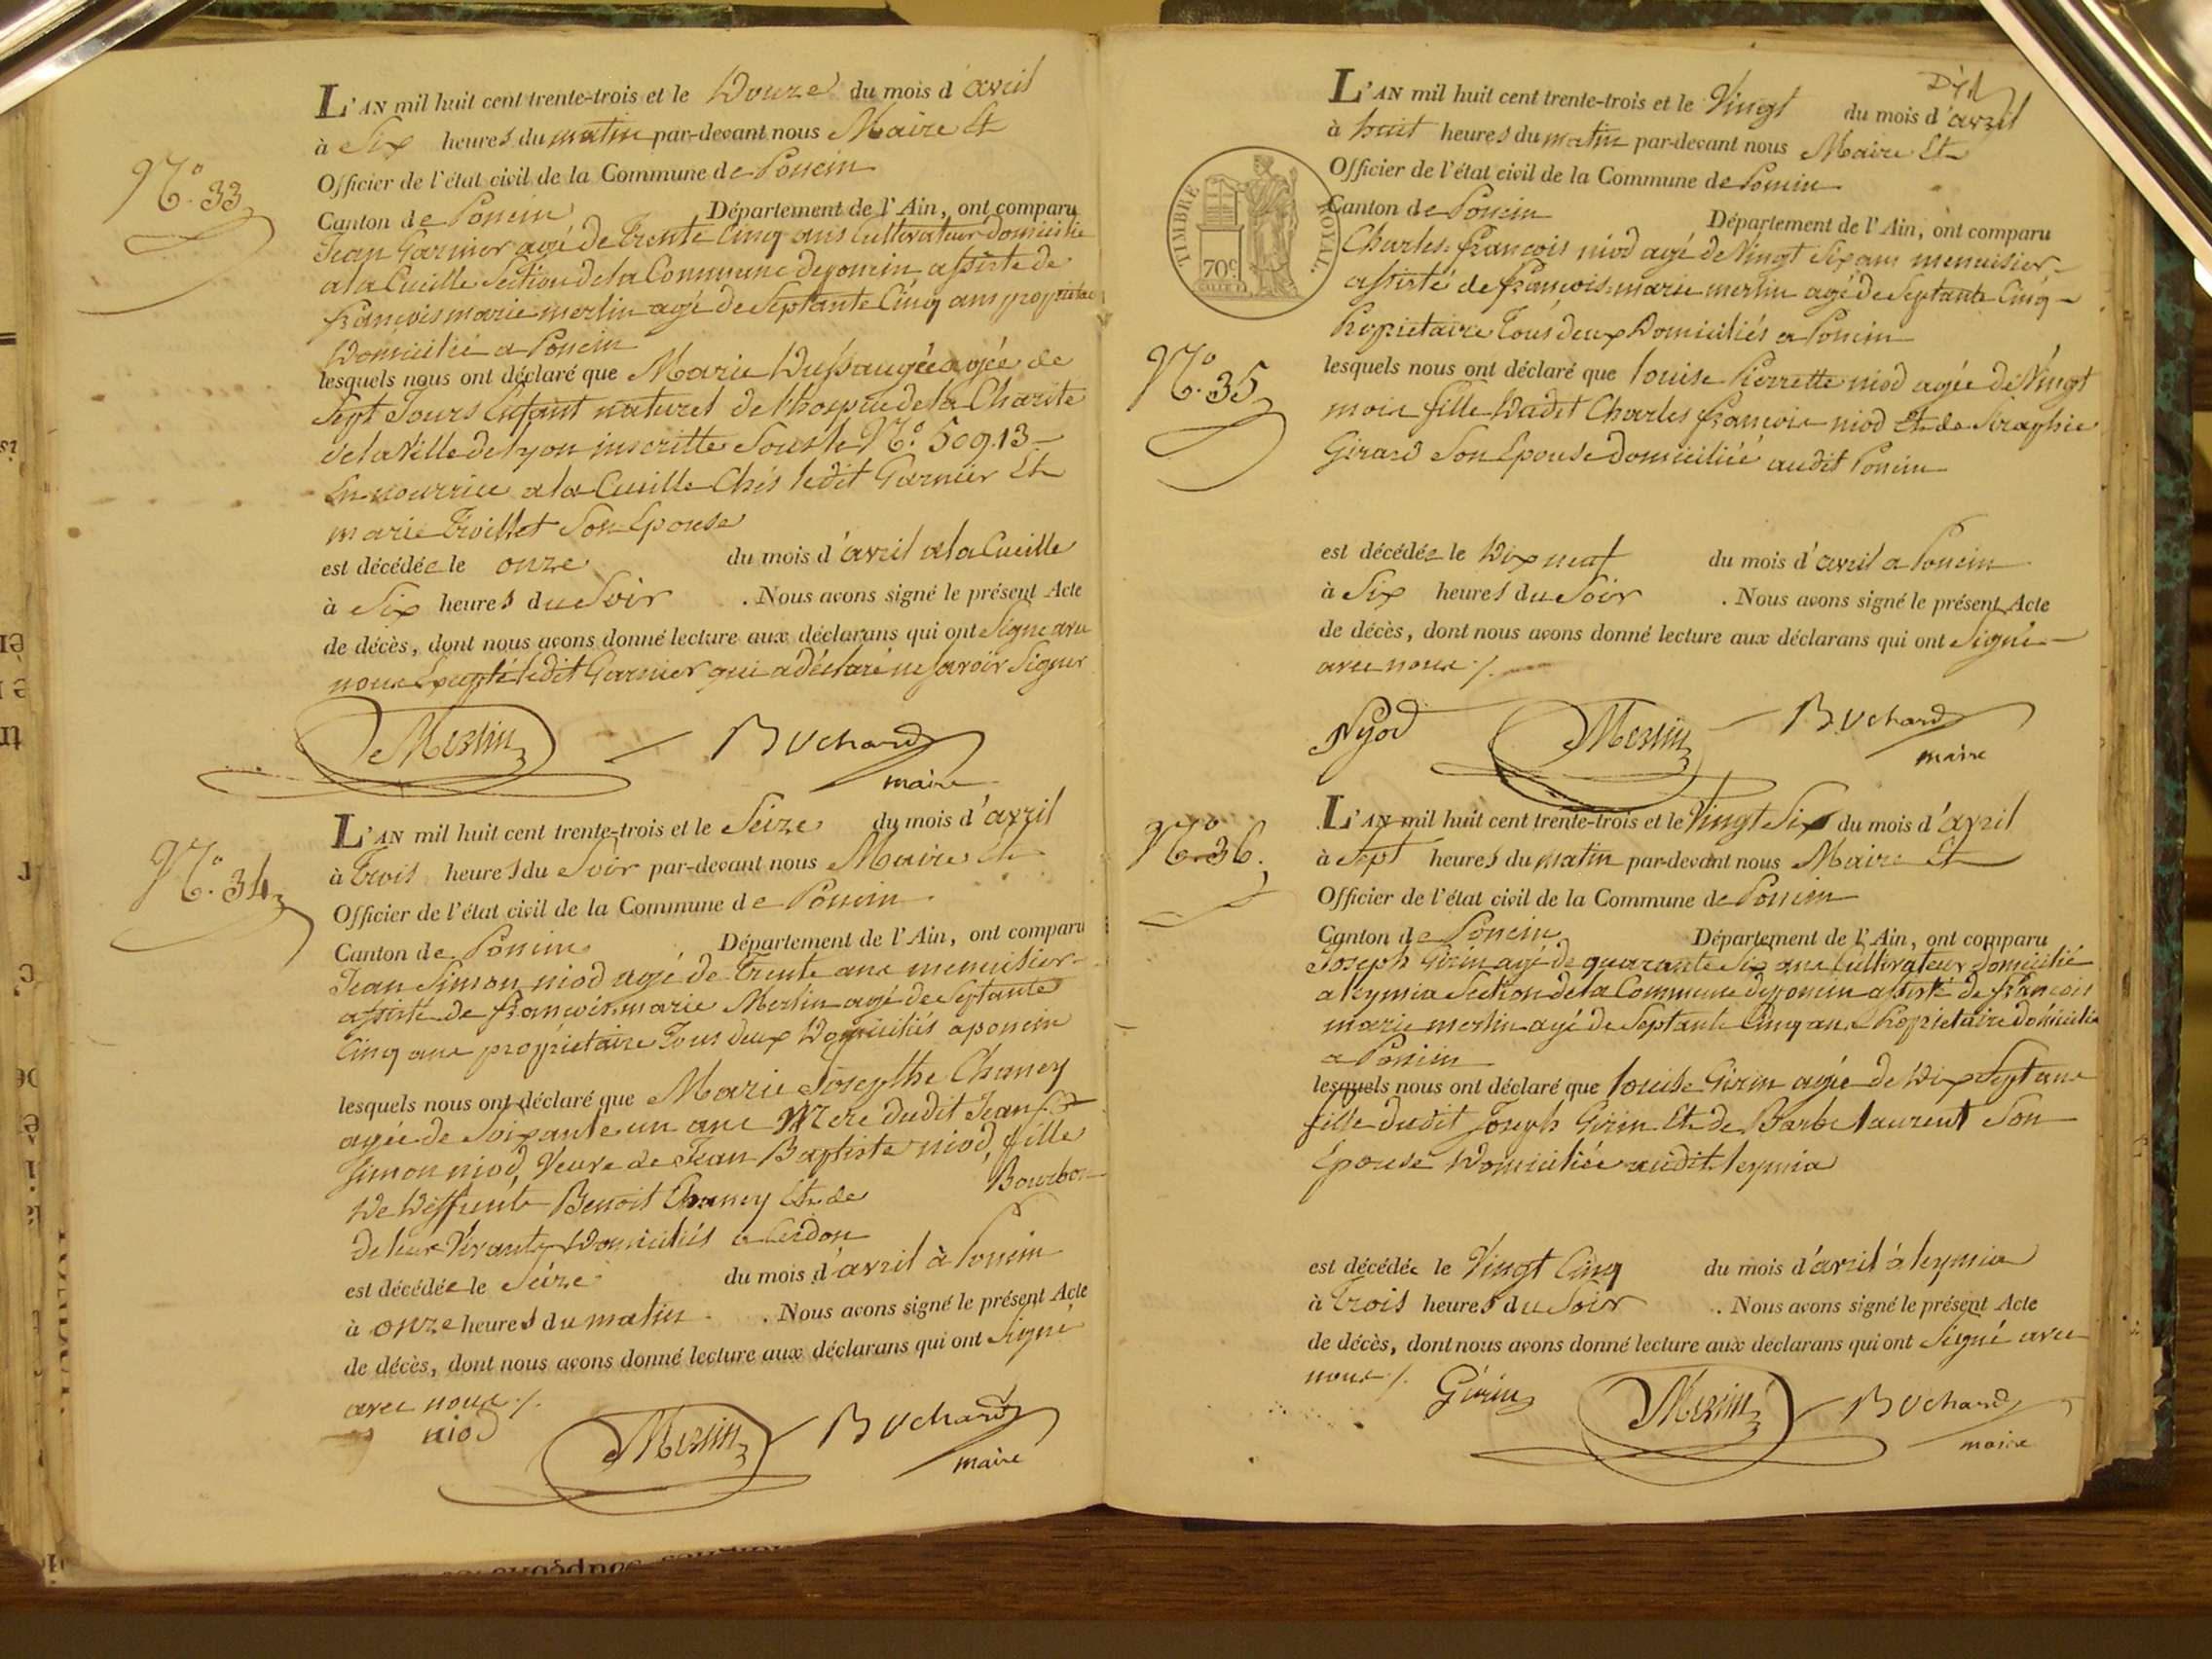 N.o 33
L'AN mil huit cent trente-trois et le Douze du mois d'avril
à Six heures du matin par-devant nous Maire Et
Officier de l'état civil de la Commune de Poncin
Canton de Poncin Département de l'Ain, ont comparu
Jean Garnier agé de trente Cinq ans Cultivateur domicilié
a la Cueille Section de la Commune de poncin assisté de
françois marie merlin agé de Septante Cinq ans propriétaire
Domicilié a Poncin
lesquels nous ont déclaré que Marie Dussaugée agée de
Sept Jours Enfant naturel de l'hospice de la Charité
de la Ville de lyon inscritte Sous le N.o 50913
En nourrice a la Cueille Chés ledit Garnier Et
marie Troillet Son Epouse
est décédée le onze du mois d'avril a la Cueille
à Six heures du Soir . Nous avons signé le présent Acte
de décès, dont nous avons donné lecture aux déclarans qui ont Signé avec
nous Excepté ledit Garnier qui a déclaré ne Savoir Signer
Merlin Buchard
maire
N.o 34
L'AN mil huit cent trente-trois et le Seize du mois d'avril
à Trois heures du Soir par-devant nous Maire Et
Officier de l'état civil de la Commune de Poncin
Canton de Poncin Département de l'Ain, ont comparu
Jean Simon niod agé de Trente ans menuisier
assisté de françois marie Merlin agé de Septante
Cinq ans propriétaire Tous deux Domiciliés a poncin
lesquels nous ont déclaré que Marie Josephe Chaney
agée de Soixante un ans Mere dudit Jean
Simon niod, Veuve de Jean Baptiste niod, fille
De Deffunt Benoit Chaney Et de Bourbon
De leur Vivants Domiciliés a Cerdon
est décédée le Seize du mois d'avril à Poncin
à onze heures du matin . Nous avons signé le présent Acte
de décès, dont nous avons donné lecture aux déclarans qui ont Signé
avec nous ./.
niod Merlin Buchard
maire
TIMBRE ROYAL.
70c
N.o 35
L'AN mil huit cent trente-trois et le Vingt du mois d'avril
à huit heures du matin par-devant nous Maire Et
Officier de l'état civil de la Commune de Poncin
Canton de Poncin Département de l'Ain, ont comparu
Charles françois niod agé de Vingt Six ans menuisier
assisté de françois marie merlin agé de Septante Cinq
Propriétaire Tous deux Domiciliés a Poncin
lesquels nous ont déclaré que louise Pierrette niod agée de Vingt
mois fille Dudit Charles françois niod Et de Séraphie
Girard Son Epouse Domiciliée audit Poncin
est décédée le Dix neuf du mois d'avril a Poncin
à Six heures du Soir . Nous avons signé le présent Acte
de décès, dont nous avons donné lecture aux déclarans qui ont Signé
avec nous ./.
Nyod Merlin Buchard
maire
N.o 36.
L'AN mil huit cent trente-trois et le Vingt Six du mois d'avril
à Sept heures du matin par-devant nous Maire Et
Officier de l'état civil de la Commune de Poncin
Canton de Poncin Département de l'Ain, ont comparu
Joseph Girin agé de quarante Six ans Cultivateur domicilié
a leymia Section de la Commune de poncin assisté de françois
marie merlin agé de Septante Cinq ans Propriétaire domicilié
a Poncin
lesquels nous ont déclaré que louise Girin agée de Dix Sept ans
fille dudit Joseph Girin Et de Barbe laurent Son
Epouse Domiciliée audit leymia
est décédée le Vingt Cinq du mois d'avril à leymia
à Trois heures du Soir . Nous avons signé le présent Acte
de décès, dont nous avons donné lecture aux déclarans qui ont Signé avec
nous ./.
Girin Merlin Buchard
maire